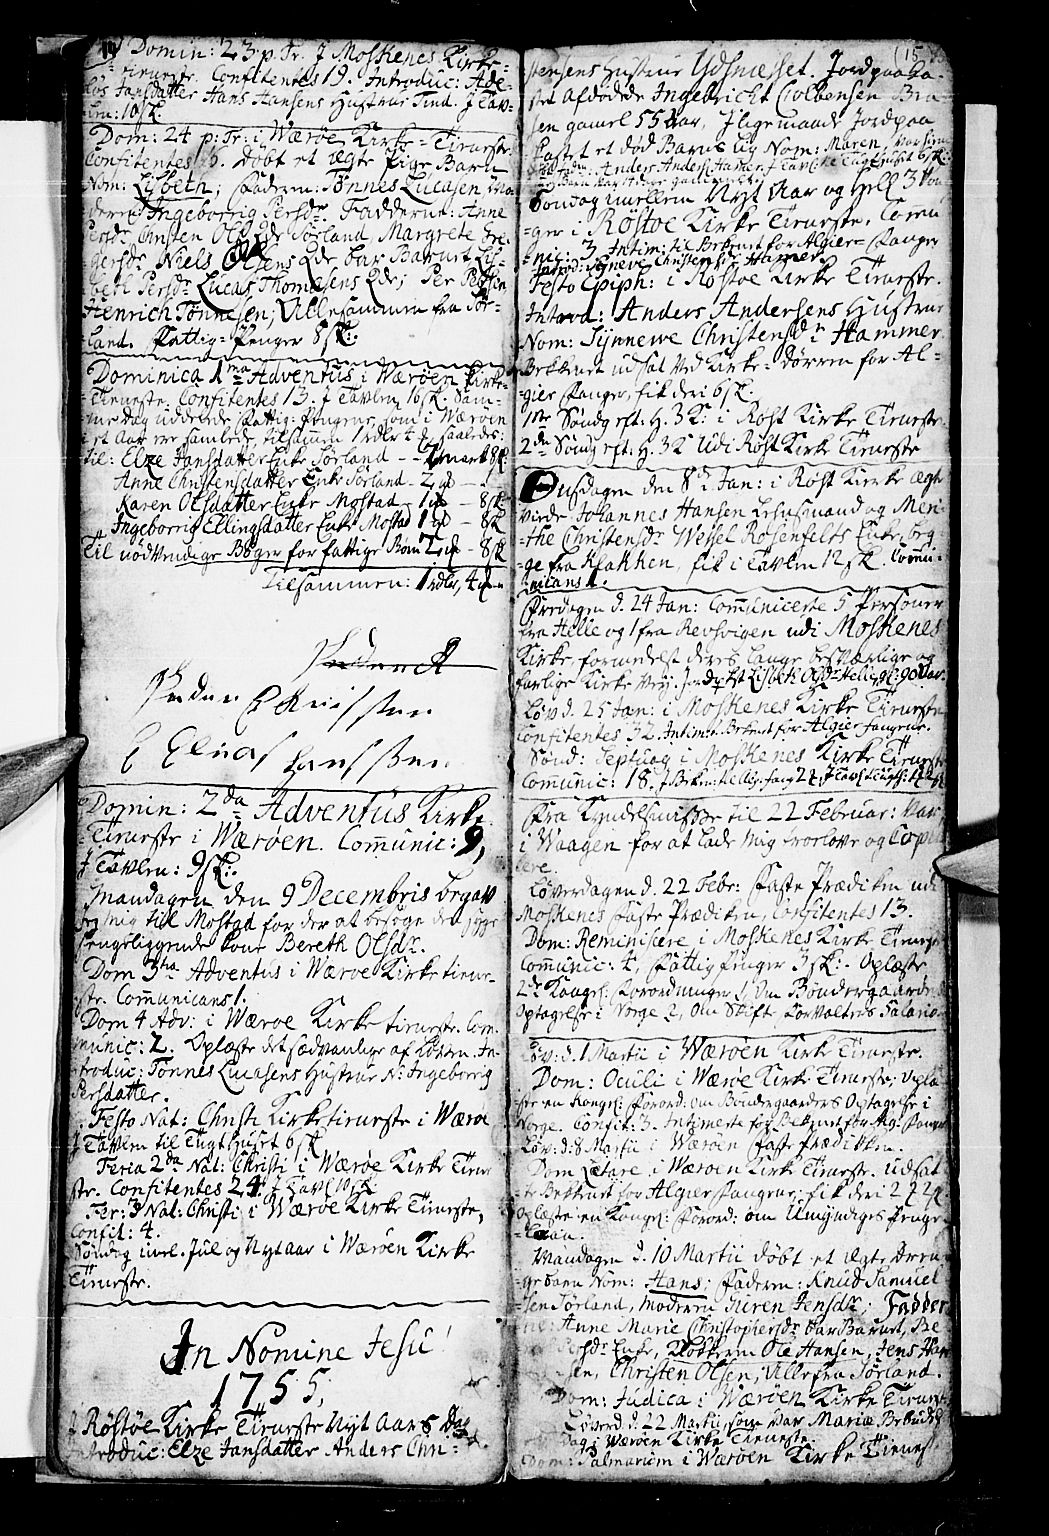 14
Domin: 23 p. Tr. J Moskenes Kirke-
tieneste. Confitentes 19. Introduc: Ade-
lus Jansdatter Hans Hansens Hustrue Tind. J Tav-
len: 10 sk.
Dom: 24 p: Tr: i Værøe Kirke-Tieneste.
Confitentes 5. døbt et ægte Pige Barn
Nom: Lisbeth; Faderen: Tønnes Lucasen Mo-
deren Ingeborrig Persdr. Fadderne: Anne
Persdr Christen Ols Qde Sørland, Margrete Gre-
gersdr Niels Olsens Qde bar Barnet Lis-
beth Persdr Lucas Thomæsens Qde; Per Persen
Henrich Tønnesen; Alle sammen fra Sør-
land. Fattig-Penger 8 sk:
Dominica 1ma Adventus i Wærøen Kirke-
Tieneste. Confitentes 13. J Tavlen 16 sk. Sam-
me Dag uddeelede Fattig-Pengene som i Værøen
i et Aar ere samlede, tilsammen 1 rdlr 4 saaledes:
til: Elze Jansdatter Enke Sørland -- 1 mark 8 sk:
Anne Christensdatter Enke Sørland - 2
Karen Olsdatter Enke Mostad - 1 - 8 sk
Ingeborrig Ellingsdatter Enke Mostad 1 - 8 sk
Til nødvendige Bøger for fattige Børn 2 - 8 sk
Tilsammen: 1 rdlr, 4
Peder Knudssen
Elias Hanssen
Domin: 2da Adventus Kirke-
Tieneste i Wærøen. Communic: 9,
J Tavlen: 9 sk:
Mandagen den 9 Decembris begav
jeg mig till Mostad for der at besøge den syge
sengeliggende Kone Bereth Olsdr.
Dom 3tia Adventus i Wæroe Kirketiene-
ste. Communicans 1.
Dom 4 Adv: i Wæroe Kirke tieneste. Com-
munic: 2. Oplæste det sædvanlige af Loven. In-
troduc: Tønnes Lucasens Hustrue N: Ingeborrig
Persdatter.
Festo Nat: Christi Kirketieneste i Wæroe
J Tavlen til Tugthuset 6 sk
Feria 2da Nat: Christi i Wærøe Kirke Tiene
ste. Confitentes 24 J Tavl 10 sk
Fer: 3 Nat: Christi i Wæroe Kirke Tieneste,
Confit: 4.
Søndag imel. Jul og Nyt aar i Wærøen Kirke
Tieneste.
In Nomine Jesu!
1755,
J Røstøe Kirke Tieneste Nyt Aars Dag
Introduc: Elze Jansdatter Anders Chri-
15
stensens Hustrue Udsnæsset. Jordpaaka-
stet Afdøde Ingebricht Colbensen Bru-
sen gamel 55 Aar, Jligemaade Jordpaa
kastet et død Barn ug Nom: Maren,
Anders Anders: Hammer, J Tavlen Tugthuset 6 sk:
Søndag imellem Nyt Aar og hell 3 Kon-
ger i Røstøe Kirke Tieneste, Commu-
nic: 3 Intim: til Bekenet for Algier-Fanger
Introd: Synneve Christensdr Hammer.
Festo Epiph: i Røstøe Kirke Tieneste.
Introd: Anders Andersens Hustrue
Nom: Synnewe Christensdr Hammer.
Bekkenet udsat ved Kirke-Dørren for Al-
gier Fanger, fik deri 6 sk.
1ste Søndg eft: H. 3 K: i Røst Kirke Tieneste
2de Søndg eft: H. 3 K Udi Røst Kirke Tieneste
Onsdagen den 8de Jan: i Røst Kierke ægte
viede Johannes Hansen Lehnsmand og Men-
the Christensdr Wessel Rosenfelts Enke, beg-
ge fra Klakken, fik i Tavlen 12 sk. Commu-
nicans 1.
Fredagen d. 24 Jan: Communicerte 5 Personer
fra Helle og 1 fra Revsvigen udi Moskenes
Kirke, formedelst deres lange besværlige og
farlige Kirke Vey. Jordpkst Lisbeth Olsdr Helle, gl: 90 Aar.
Løv d. 25 Jan: i Moskenes Kirke Tieneste
Confitentes 32. Intimat: Bekenet for Algier fangene.
Sønd: Septuag i Moskenes Kirke Tieneste
Communic: 18.
Fra Kyndelmisse til 22 Februar: Var
i Waagen for at lade mig troelove og Copu-
lere.
Løverdagen d. 22 Febr: Faste Prædiken udi
Moskenes Faste Prædiken, Confitentes 13.
Dom: Reminiscere i Moskenes Kirke Tieneste
Communic: 4, Fattig Penger 3 sk: Oplæste
2de Kongel: Forordninger 1, Om Bøndergaardenes
Optagelse i Norge 2, Om Skifte Forvalters Salario
Løv: d. 1 Martii i Wærøen Kirke Tieneste.
Dom: Oculi i Wærøe Kirke Tieneste; Oplæ-
ste en Kongel: Forord: om Bøndergaarders Optagelse i
Norge. Confit: 3. Intimerte for Bekenet for Alg: Fanger
Løv: d: 8 Martii i Wærøen Faste Prædikken.
Dom Lætare i Wærøen Kirk Tieneste. Udsat-
te Bekkenet for Algier Fangene, fik deri 2
oplæste en Kongel: Forord: om Umyndiges Penge
Laan.
Mandagen d. 10 Martii døbt et ægte Dren-
ge barn Nom: Hans; Faderen: Knud Samuel-
sen Sørland, Moderen Guren Jensdr; Fadder-
ne: Anne Marie Christophersdr bar Barnet, Be
Persdr Enke, Klokkeren Ole Hansen, Jens Han-
sen, Christen Olsen, Alle fra Sørland.
Dom: Judica i Wærøen Kirke Tieneste
Løverd. d. 22 Martii, som Var Mariæ Bebudelses
Dag i Wærøen Kirke Tieneste.
Dom: Palmarum i Wærøen Kirke Tieneste